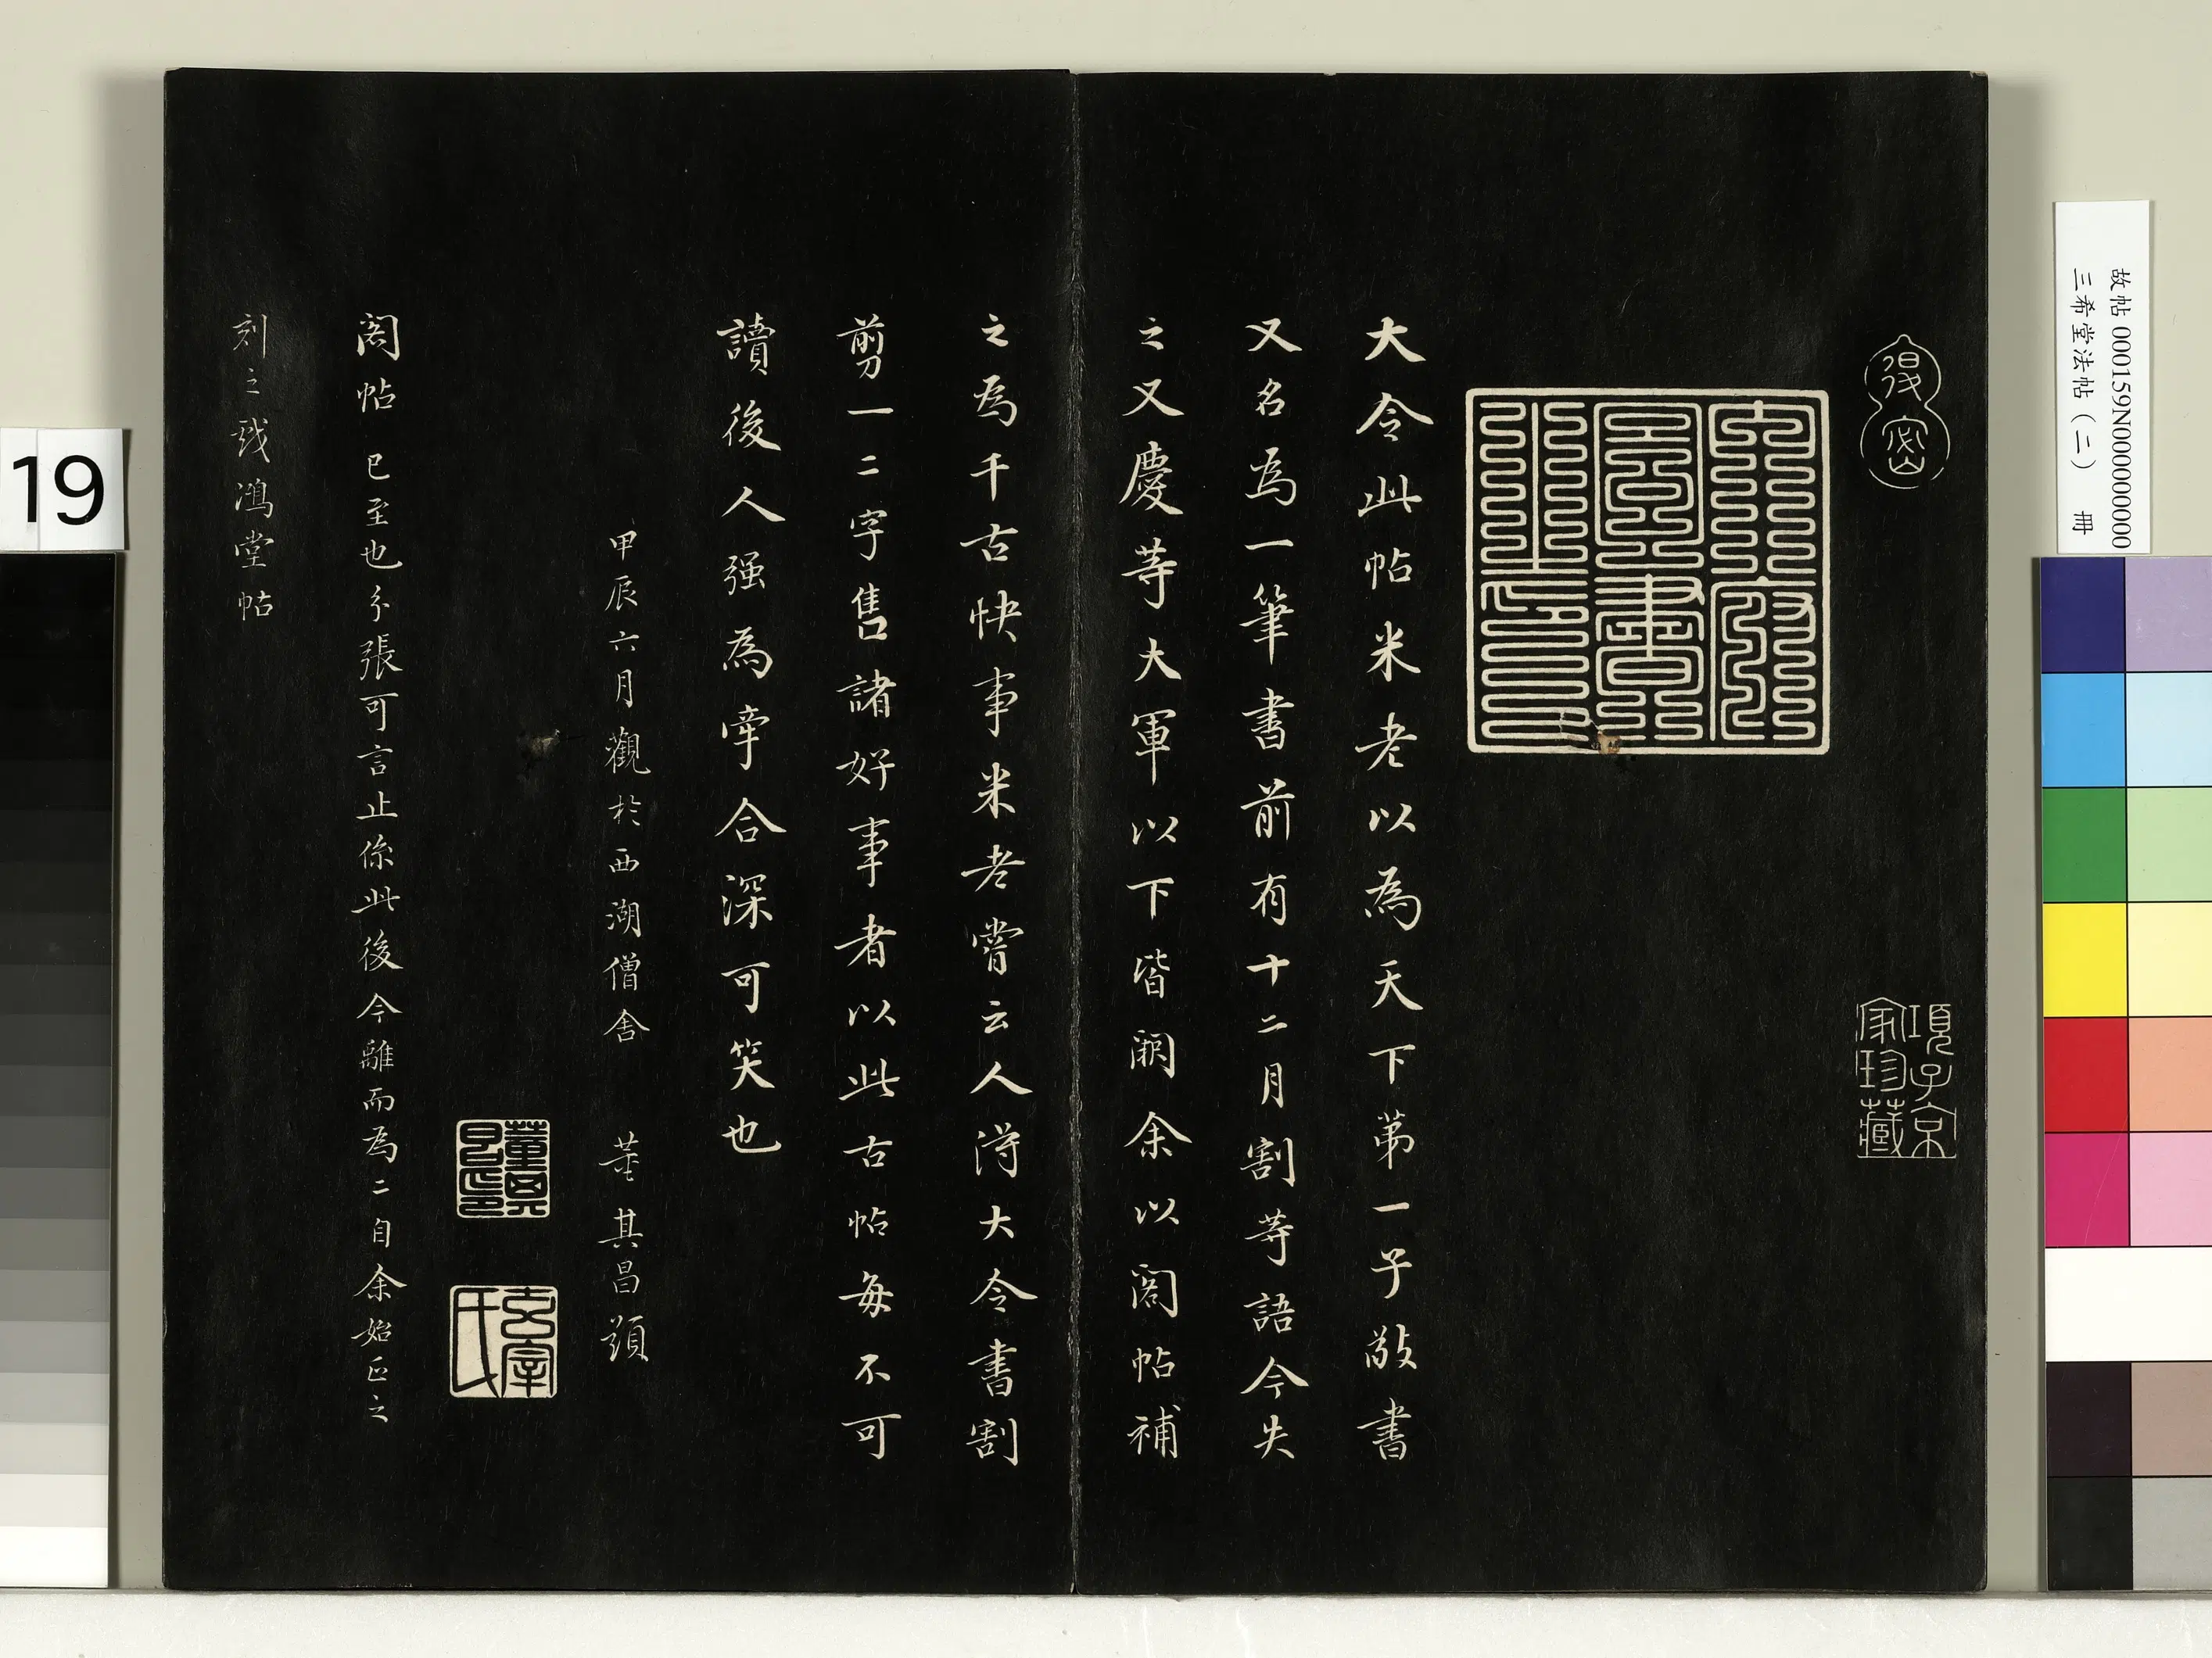 得密
項子京
家珍藏
大令此帖米老以為天下第一子敬書
又名為一筆書前有十二月割等語今失
之又慶等大軍以下皆闕余以閣帖補
之為千古快事米老嘗云人得大令書割
剪一二字售諸好事者以此古帖每不可
讀後人強為牽合深可笑也
甲辰六月觀於西湖僧舍 董其昌題
董其昌印
玄宰氏
閣帖已至也分張可言止係此後今離而為二自余始正之
刻之戏鴻堂帖
故帖 000159N000000000
三希堂法帖(二) 冊
19